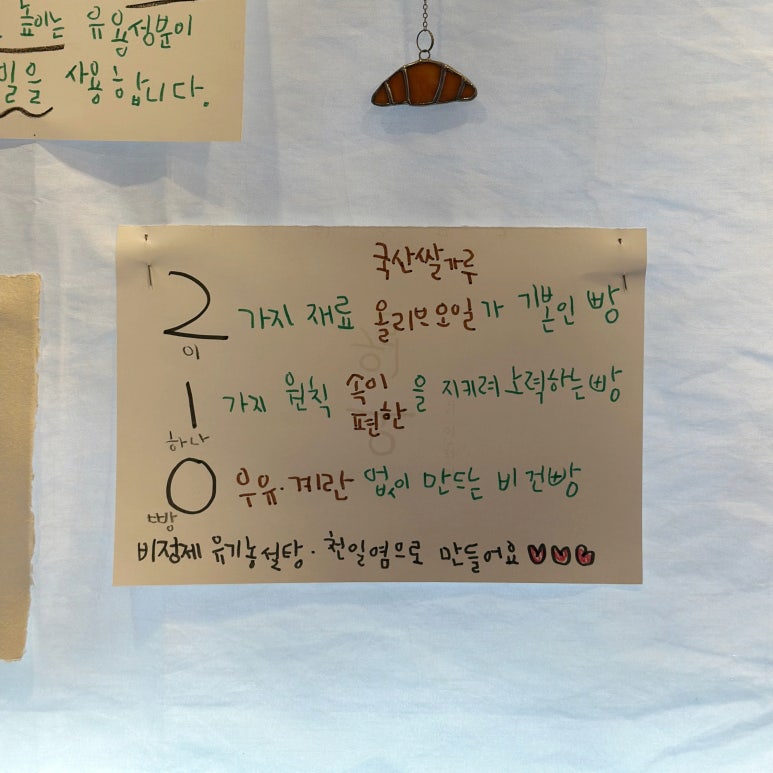 높이는 유용성분이
밀을 사용합니다.
국산쌀가루
2 가지 재료 올리브오일가 기본인 빵
이
1 가지 원칙 속이 편한 을 지키려 노력하는 빵
하나
0 우유·계란 없이 만드는 비건빵
빵
비정제 유기농설탕·천일염으로 만들어요